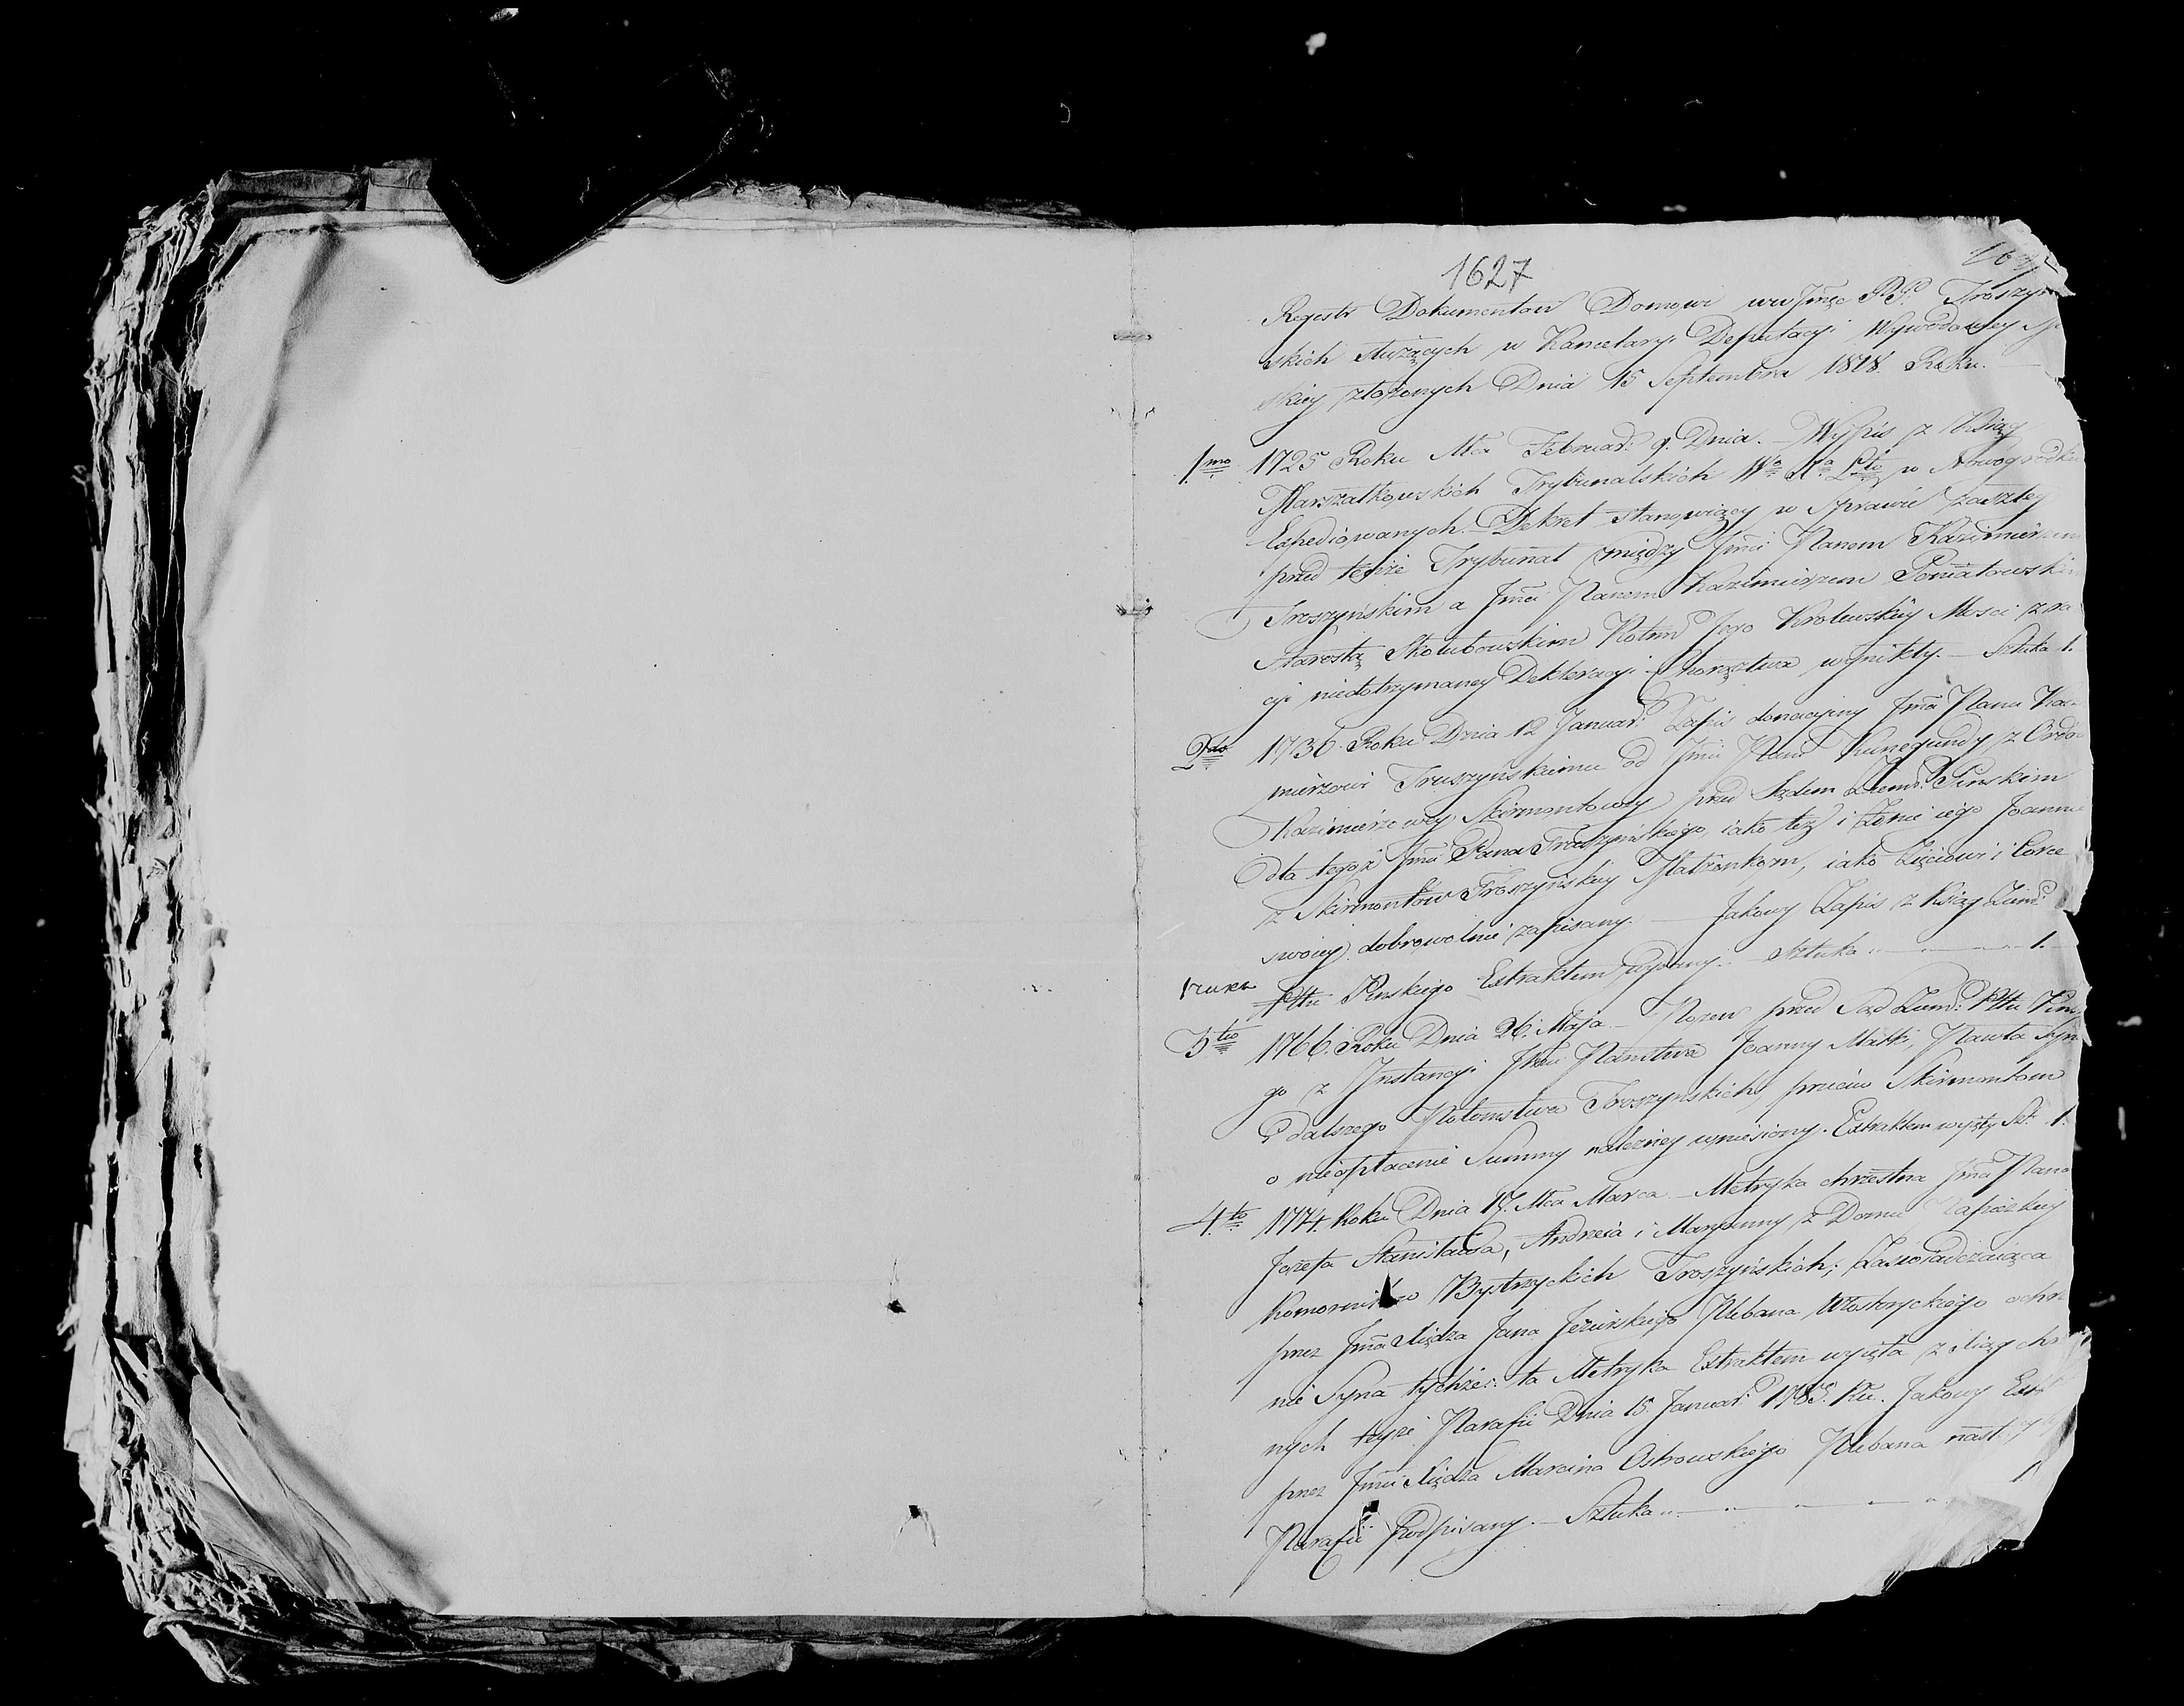 1627
Regestr Dokumentow Domowi ww Jmść PP. Troszyń
skich służących w Kancelaryi Deputacyi Wywodowey
skiey złożonych Dnia 15 Septembra 1818. Roku.
1mo 1725 Roku Mca Februar: 9. Dnia. Wypis z Xiąg
Marszałkowskich Trybunalskich Wo Xa Lto w Nowogrodku
Expediowanych. Dekret stanowiący w Sprawie zaszłey
przed tegoż Trybunał między Jmci Panem Kazimierzem
Troszyńskim a Jmci Panem Kazimierzem Poniatowskim
Starostą Rotm Jego Krolewskiey Mosci z ra
cyi niedotrzymaney Deklaracyi wynikły. — Sztuka 1.
2do 1736. Roku Dnia 12 Januar: Zapis donacyiny Jmci Panu Kazi
mierzowi Truszyńskiemu od Jmci Pani Kunegundy z Ordow
Kazimierzowey Skirmontowey przed Sądem Ziems: Pinskim
dla tegoż Jmci Pana Truszyńskiego, iako też i Żonie iego Joannie
z Skirmontow Troszyńskiey Małżonkom, iako Zięciowi i Corce
swoiey dobrowolnie zapisany. — Jakowy Zapis z Xiąg Ziems:
Pttu Pinskiego Extraktem wyięty. — Sztuka — 1.
3tio 1766. Roku Dnia 26. Maja — Pozew przed Sąd Ziems: Pttu Pins
go z Instancyi Jchm Panstwa Joanny Matki, Pawła Syna
i dalszego Potomstwa Troszynskich, przeciw Skirmontom
o nieopłacenie Summy należney wyniesiony. Extraktem wyięty Szt. 1.
4to 1774. Roku Dnia 17. Mca Marca — Metryka chrzestna Jmci Pana
Jozefa Stanisława, Andrzeia i Maryanny z Domu
Komornikow Bystrzyckich Troszyńskich; Zaswiadczaiąca
przez Jmci Xiędza Jana Plebana ochrz
nie Syna tychże: ta Metryka Extraktem wyięta z Xiąg chrz
nych teyże Parafii Dnia 15. Januar: 1785. Ru. Jakowy Ext
przez Jmci Xiędza Marcina Ostrowskiego Plebana
Parafii Podpisany. — Sztuka — 1